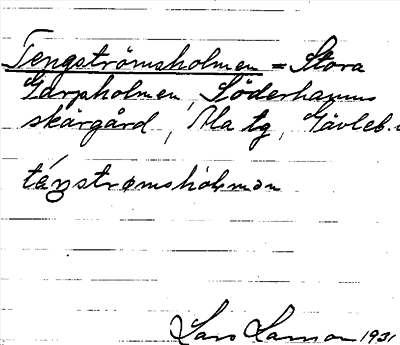 Tengströmsholmen = Stora
Garpholmen, Söderhamns
skärgård, Ala tg, Gävleb.
téŋstrømshòlmǝn
Lars Larsson 1931